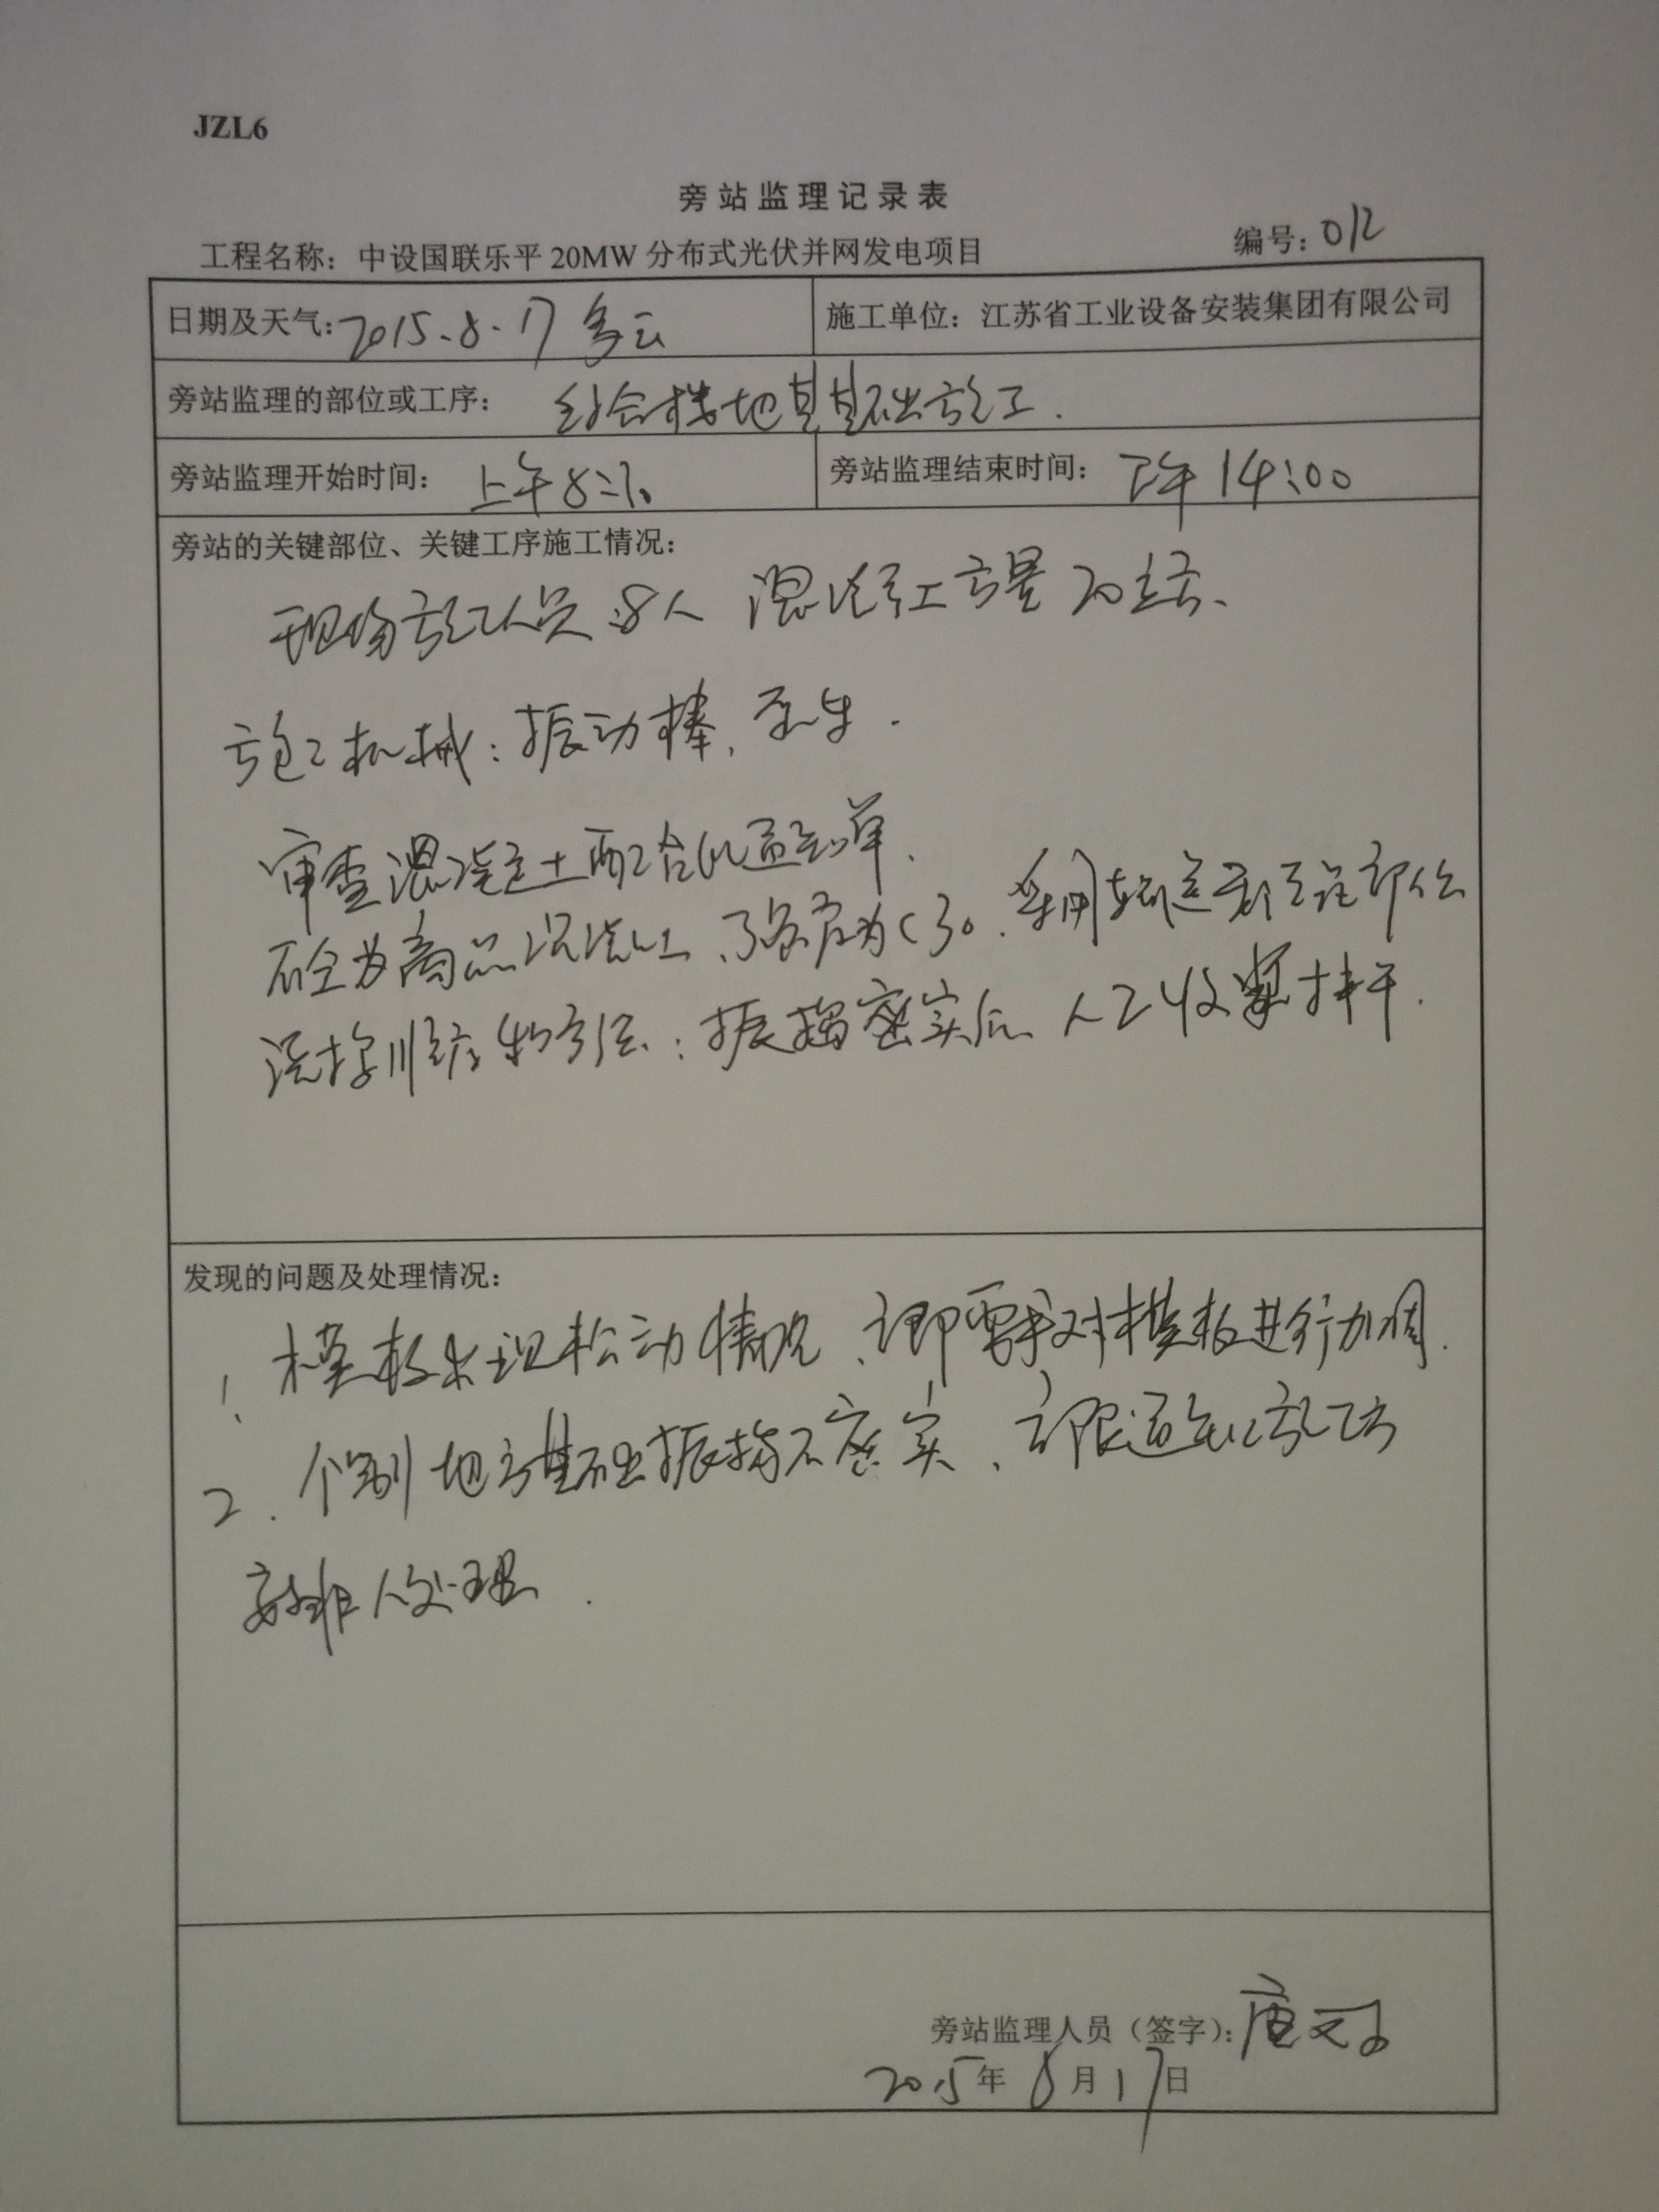 JZL6
旁站监理记录表
工程名称：中设国联乐平 20MW 分布式光伏并网发电项目 编号：012
日期及天气：2015.8.17 多云 施工单位：江苏省工业设备安装集团有限公司
旁站监理的部位或工序： 综合楼地基基础施工.
旁站监理开始时间： 上午8:30 旁站监理结束时间： 下午14:00
旁站的关键部位、关键工序施工情况：
现场施工人员:8人 混凝土方量20立方、
施工机械：振动棒，泵车.
审查混凝土配合比通知单、
砼为商品混凝土、强度为C30.采用输送泵至浇部位
浇捣顺序和方法：振捣密实后 人工收浆抹平.
发现的问题及处理情况：
1、模板出现松动情况、立即要求对模板进行加固.
2.个别地方基础振捣不密实、立即通知施工方
安排人处理.
旁站监理人员（签字）：唐
2015年8月17日